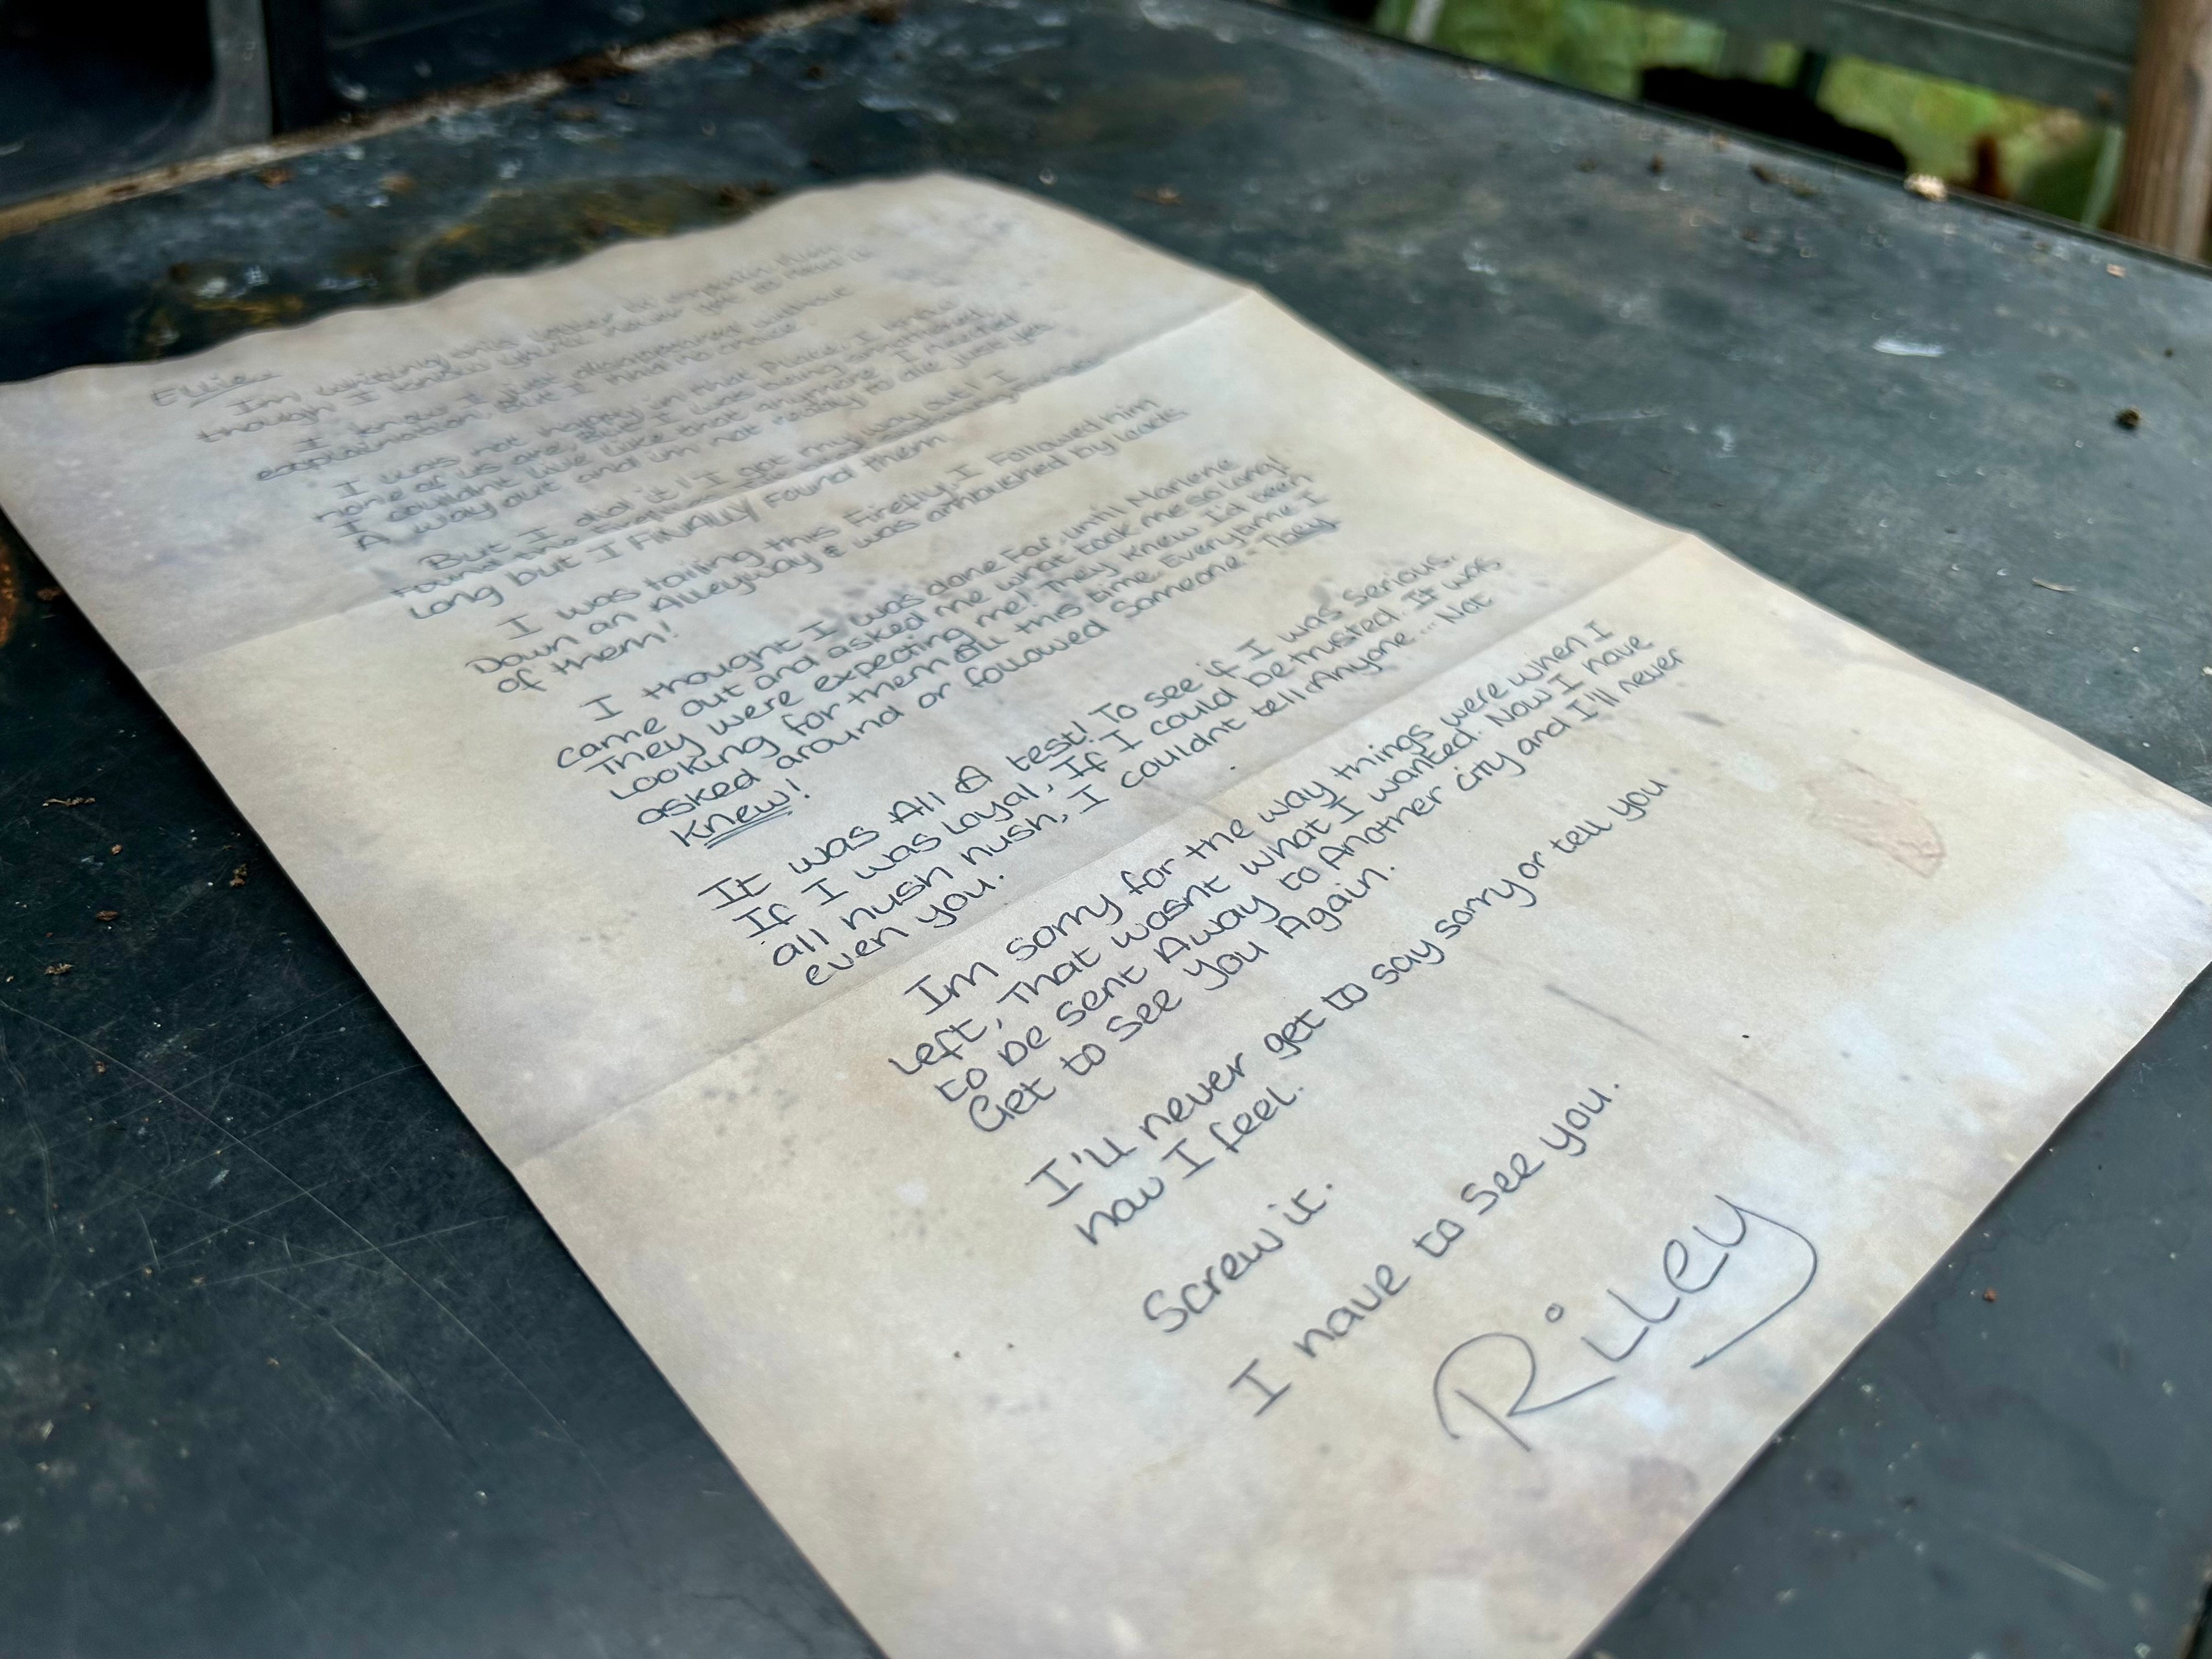 Ellie.
Im writing this letter to explain even
though I know you'll never get to read it
I know I just disappeared without
explaination, but I had no choice
I was not happy in that place, I know
none of us are, But I was being smothered,
I couldnt live like that anymore, I needed
A way out and im not ready to die just yet
But I did it! I got my way out! I
Found the Fireflies.
Long but I FINALLY Found them
I was tailing this Firefly, I Followed him
Down an Alleyway & was ambushed by loads
of them!
I thought I was done For, until Marlene
came out and asked me what took me so long!
They were expecting me! They knew I'd been
Looking for them All this time. Everytime I
asked around or followed Someone - They
Knew!
It was All A test! To see if I was serious,
If I was Loyal, If I could be trusted. It was
all hush hush, I couldnt tell Anyone... Not
even you.
Im sorry for the way things were when I
Left, That wasnt what I wanted. Now I have
to be sent Away to Another city and I'll never
Get to see you Again.
I'll never get to say sorry or tell you
how I feel.
Screw it.
I have to see you.
Riley